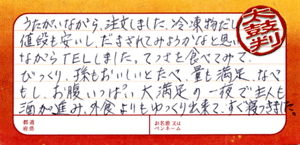 太鼓判
うたがいながら、注文しました。冷凍物だし
値段も安いし、だまされてみようかなと思い
ながらTELしました。てっさを食べてみて、
びっくり、孫もおいしいとたべ、量も満足、なべ
もし、お腹いっぱい大満足の一夜で主人も
酒が進み、外食よりもゆっくり出来て、すぐ寝つきました。
都道府県
お名前又はペンネーム